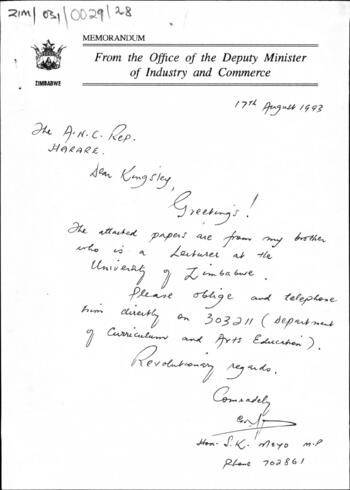 ZIM/031/0029/28
MEMORANDUM
From the Office of the Deputy Minister
of Industry and Commerce
ZIMBABWE
17th August 1993
The A.N.C. Rep.
HARARE.
Dear Kingsley,
Greetings!
The attached papers are from my brother
who is a Lecturer at the
University of Zimbabwe.
Please oblige and telephone
him directly on 303211 (Department
of Curriculum and Arts Education).
Revolutionary regards.
Comradely
Hon. S.K. Moyo M.P
Phone 702861